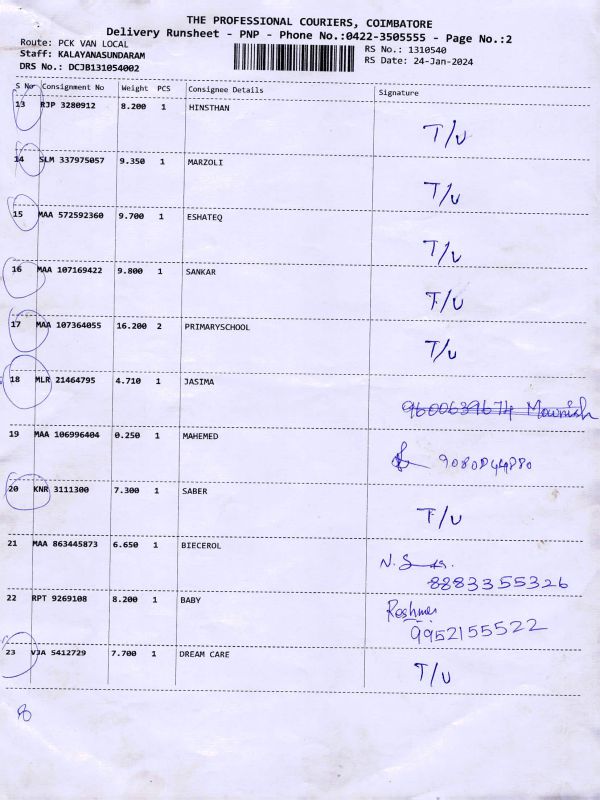 THE PROFESSIONAL COURIERS, COIMBATORE
Delivery Runsheet - PNP - Phone No.:0422-3505555 - Page No.:2
Route: PCK VAN LOCAL
RS No.: 1310540
Staff: KALAYANASUNDARAM
RS Date: 24-Jan-2024
DRS No.: DCJB131054002
S No Consignment No Weight PCS Consignee Details Signature
13 RJP 3280912 8.200 1 HINSTHAN
T/U
14 SLM 337975057 9.350 1 MARZOLI
T/U
15 MAA 572592360 9.700 1 ESHATEQ
T/U
16 MAA 107169422 9.800 1 SANKAR
T/U
17 MAA 107364055 16.200 2 PRIMARYSCHOOL
T/U
18 MLR 21464795 4.710 1 JASIMA
9600639674 Mownish
19 MAA 106996404 0.250 1 MAHEMED
20 KNR 3111300 7.300 1 SABER
T/U
21 MAA 863445873 6.650 1 BIECEROL
8883355326
22 RPT 9269108 8.200 1 BABY
9952155522
23 VJA 5412729 7.700 1 DREAM CARE
T/U